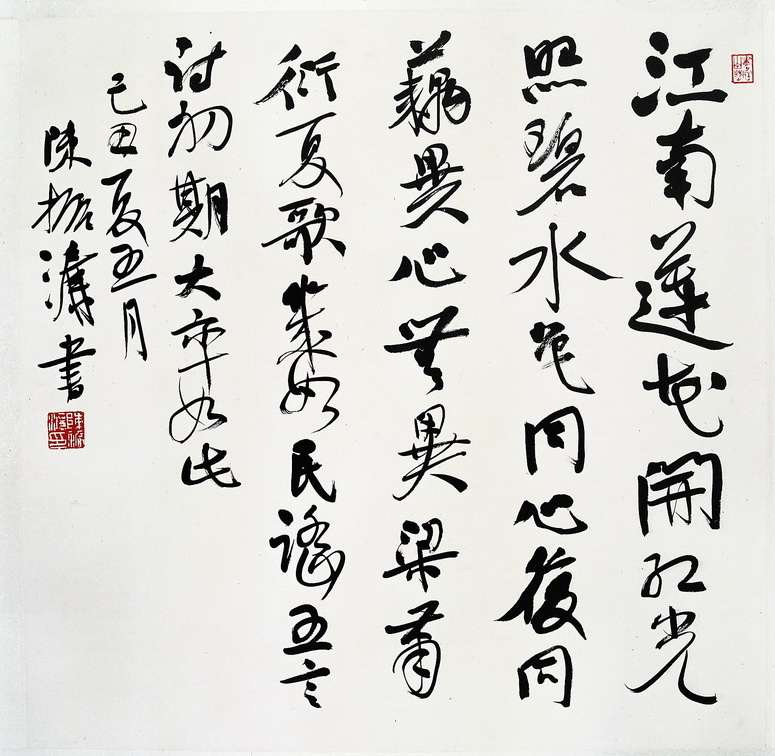 江南蓮花開紅光
照碧水色同心復同
藕異心無異梁蕭
衍夏歌如民謠五言
詩初期大率如此
己丑夏五月
陳振濂書
陳振濂印